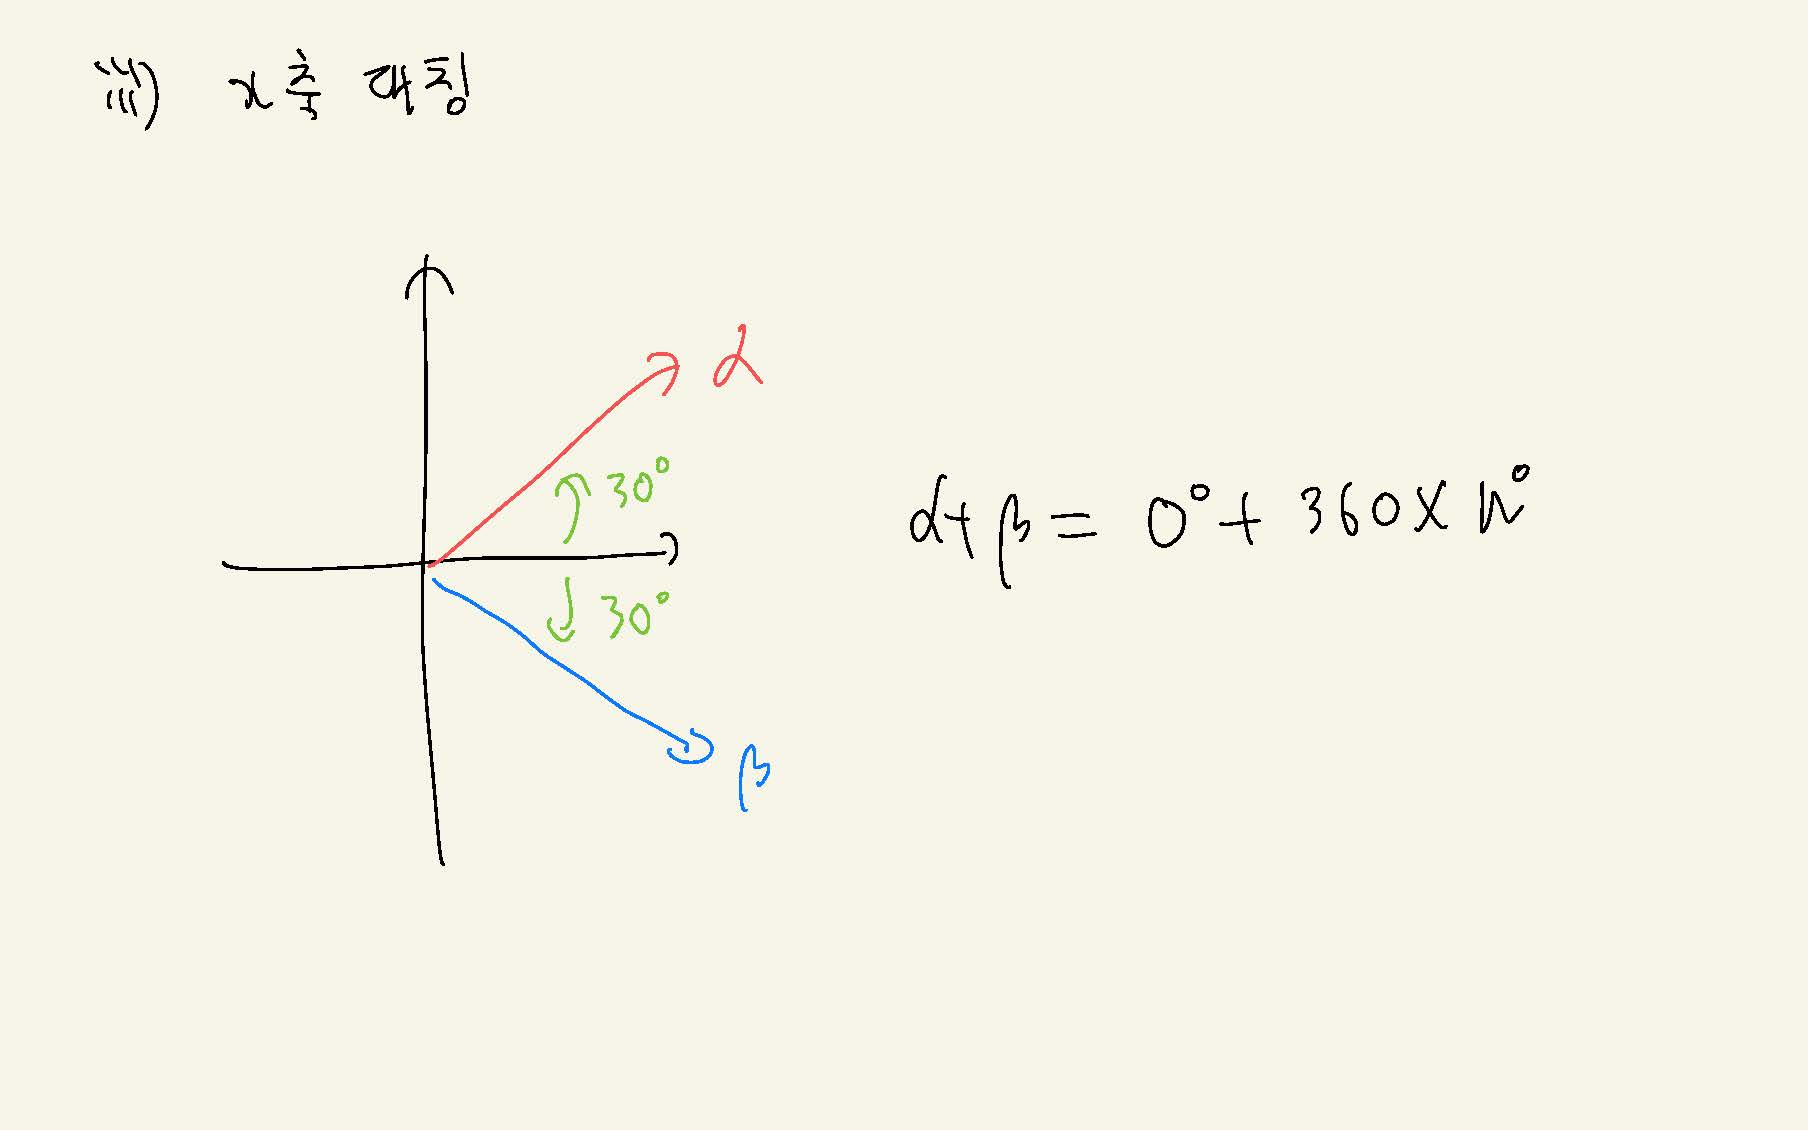 iii) x축 대칭
α
30°
30°
β
α+β = 0° + 360 × n°